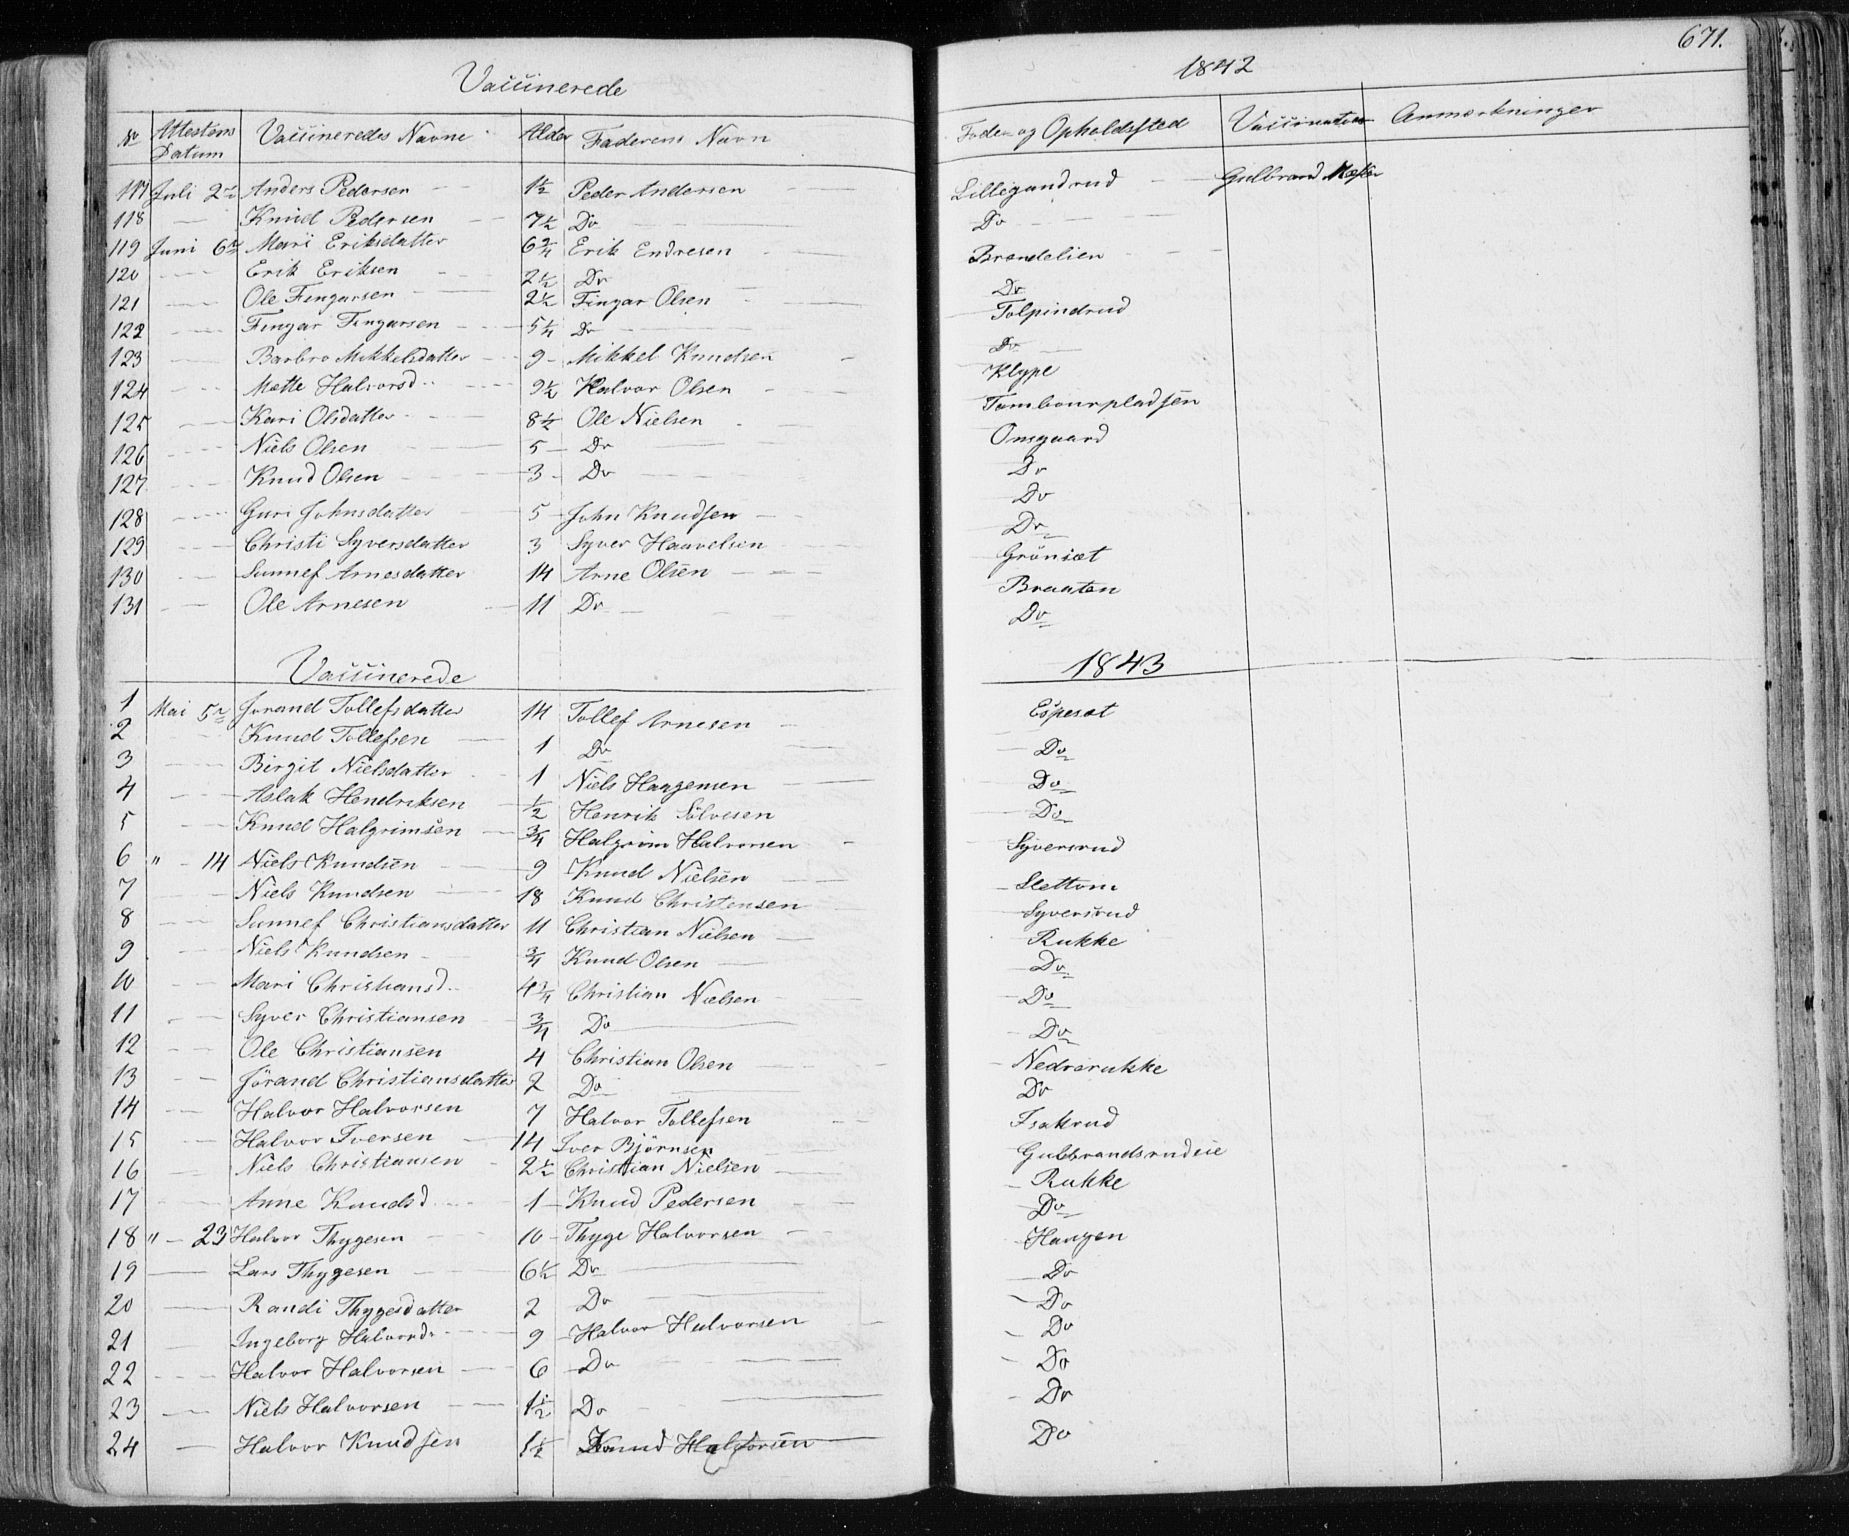 671.
Vaccinerede 1842
No Attestens Datum Vaccineredes Navne Alder Faderens Navn Føde- og Opholdssted Vaccinateur Anmærkninger
117 Juli 2 Anders Pedersen 1½ Peder Andersen Lillegandrud Gulbrand
118 Knud Pedersen 7½ Do Do
119 Juni 6 Mari Eriksdatter 6 Erik Endresen Brendelien
120 Erik Eriksen 2½ Do Do
121 Ole Fingarsen 2½ Fingar Olsen Tolpindrud
122 Fingar Fingarsen 5¼ Do Do
123 Barbro Mikkelsdatter 9 Mikkel Knudsen Klype
124 Mette Halvorsd. 9½ Halvor Olsen Tambourpladsen
125 Kari Olsdatter 8½ Ole Nielsen Onsgaard
126 Niels Olsen 5 Do Do
127 Knud Olsen 3 Do Do
128 Guri Johnsdatter 5 John Knudsen Do
129 Christi Syversdatter 3 Syver Haavelsen Grönsæt
130 Sunnef Arnesdatter 14 Arne Olsen Braaten
131 Ole Arnesen 11 Do Do
Vaccinerede 1843
1 Mai 5 Jorand Tollefsdatter 14 Tollef Arnesen Espeset
2 Knud Tollefsen 1 Do Do
3 Birgit Nielsdatter 1 Niels Haagensen Do
4 Aslak Hendriksen ½ Henrik Sølvesen Do
5 Knud Halgrimsen ¾ Halgrim Halvorsen Syversrud
6 " 14 Niels Knudsen 9 Knud Nielsen Slettom
7 Niels Knudsen 18 Knud Christensen Syversrud
8 Sunnef Christiansdatter 11 Christian Nielsen Rukke
9 Niels Knudsen ¾ Knud Olsen Do
10 Mari Christiansd. 4¾ Christian Nielsen Do
11 Syver Christiansen ¾ Do Do
12 Ole Christiansen 4 Christian Olsen Nedrerukke
13 Jörand Christiansdatter 2 Do Do
14 Halvor Halvorsen 7 Halvor Tollefsen Isakrud
15 Halvor Iversen 14 Iver Björnsen Gulbrandsrudeie
16 Niels Christiansen 2½ Christian Nielsen Rukke
17 Anne Knudsd. 1 Knud Pedersen Do
18 " 23 Halvor Thygesen 10 Thyge Halvorsen Haugen
19 Lars Thygesen 6½ Do Do
20 Randi Thygesdatter 2 Do Do
21 Ingeborg Halvorsd. 9 Halvor Halvorsen Do
22 Halvor Halvorsen 6 Do Do
23 Niels Halvorsen 1½ Do Do
24 Halvor Knudsen 1½ Knud Halvorsen Do